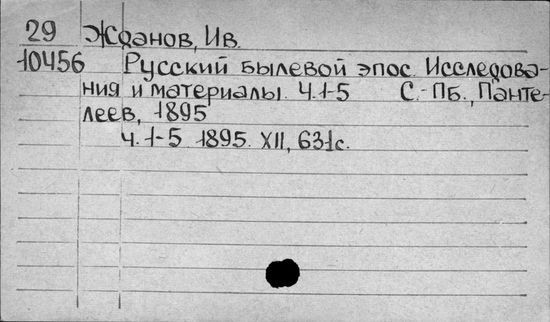 29 Жданов, Ив.
10456 Русский былевой эпос. Исследова-
ния и материалы. Ч. 1-5 С.-Пб., Панте-
леев, 1895
ч. 1-5 1895. XII, 631с.